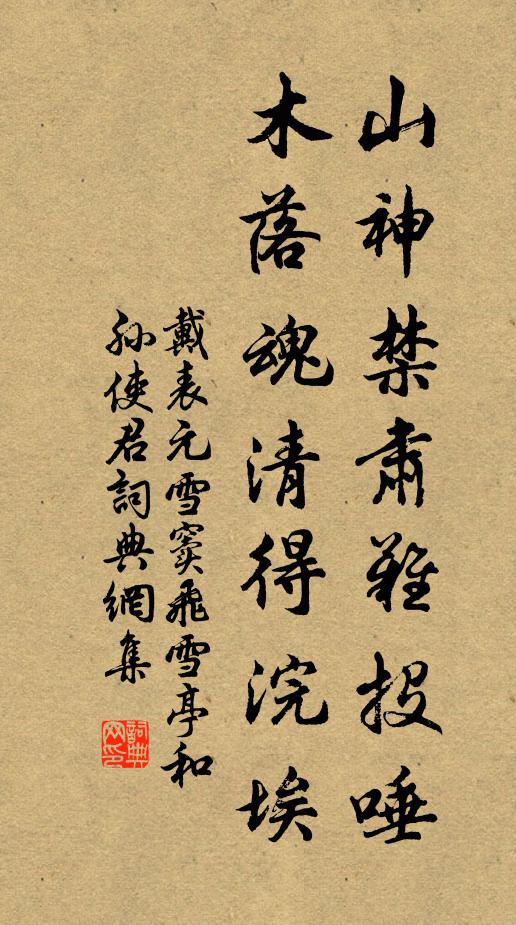 山神禁肅難投唾
木落魂清得浣埃
戴表元雪竇飛雪亭和
孫使君詞典網集
詞典
网印